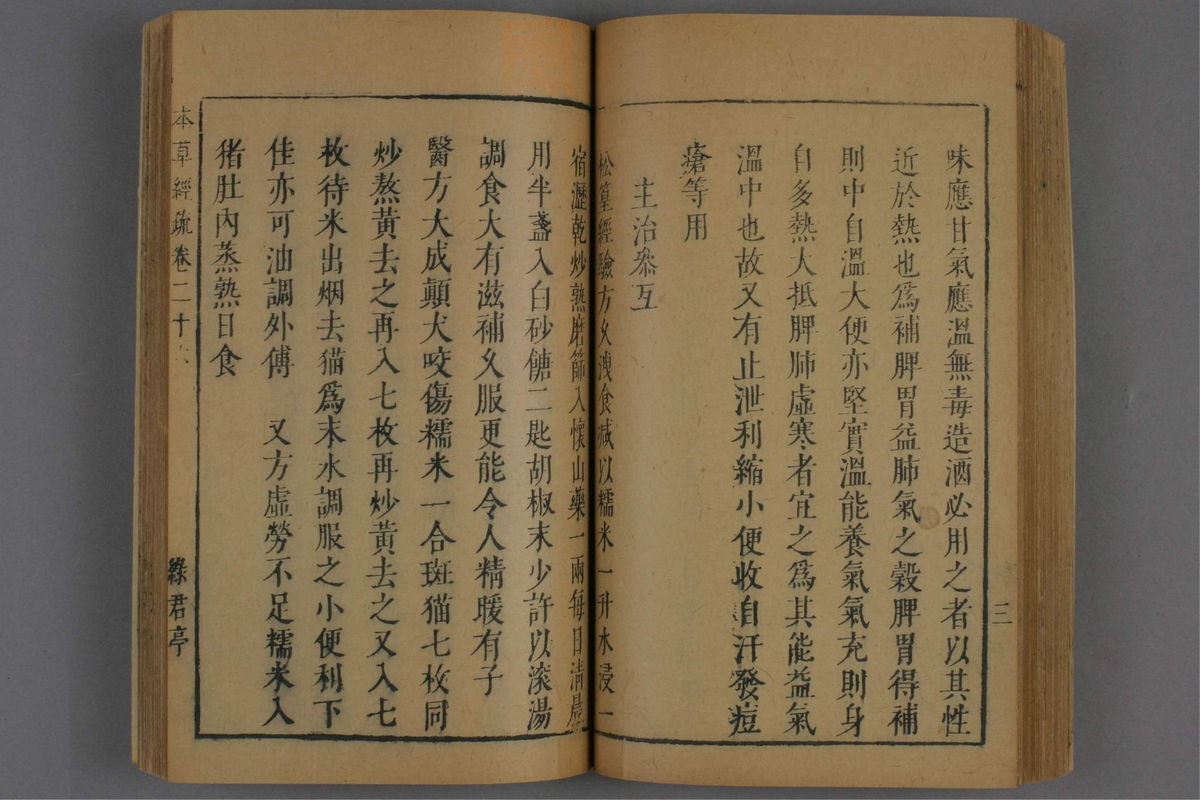 味應甘氣應溫無毒造酒必用之者以其性
近於熱也爲補脾胃益肺氣之穀脾胃得補
則中自溫大便亦堅實溫能養氣氣充則身
自多熱大抵脾肺虛寒者宜之爲其能益氣
溫中也故又有止泄利縮小便收自汗發痘
瘡等用
主治叅互
松篁經驗方久洩食減以糯米一升水浸一
三
宿瀝乾炒熟磨篩入懷山藥一兩每日清晨
用半盞入白砂餹二匙胡椒末少許以滚湯
調食大有滋補久服更能令人精暖有子
醫方大成顛犬咬傷糯米一合斑猫七枚同
炒熬黄去之再入七枚再炒黄去之又入七
枚待米出烟去猫爲末水調服之小便利下
佳亦可油調外傅 又方虛勞不足糯米入
猪肚內蒸熟日食
本草經疏卷二十
綠君亭